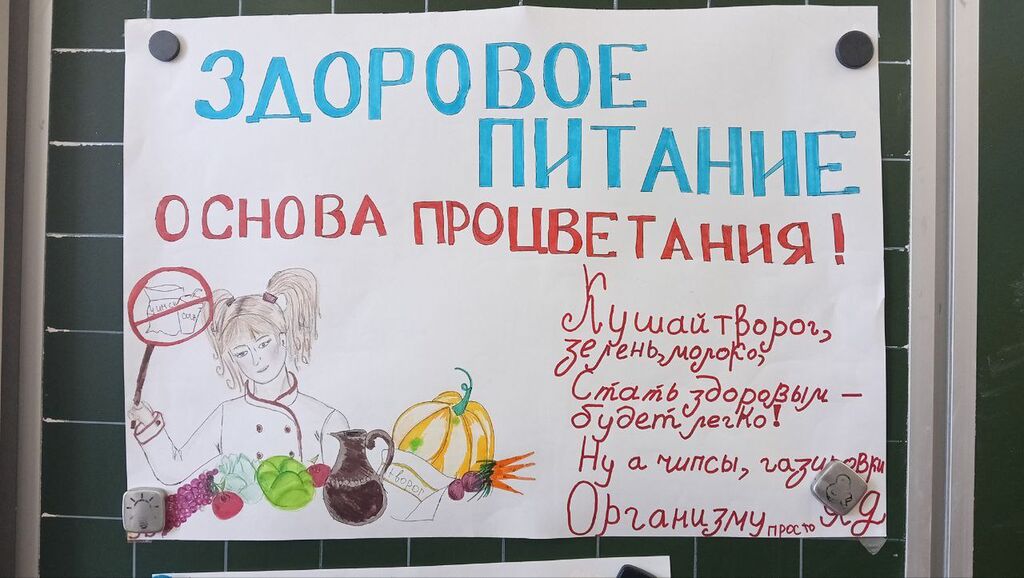 ЗДОРОВОЕ
ПИТАНИЕ
ОСНОВА ПРОЦВЕТАНИЯ!
Кушай творог,
зелень, молоко,
Стать здоровым –
будет легко!
Ну а чипсы, газировки
Организму просто яд
чипсы
творог